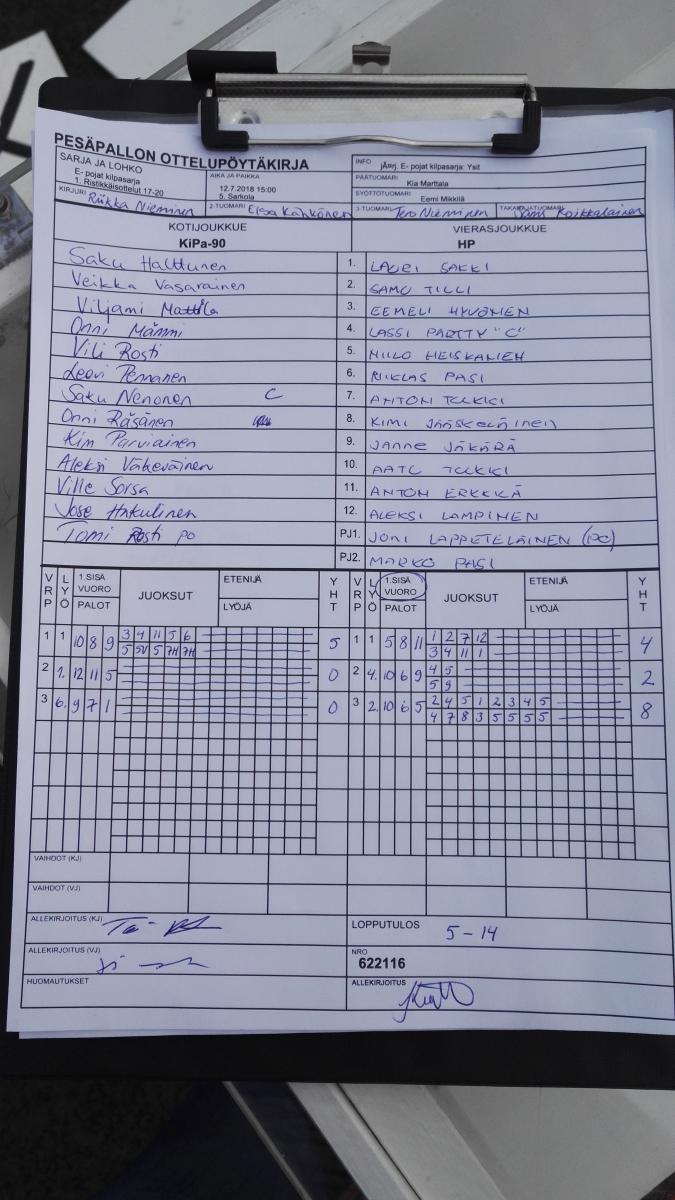 PESÄPALLON OTTELUPÖYTÄKIRJA
SARJA JA LOHKO
E- pojat kilpasarja
1. Ristikkäisottelut 17-20
AIKA JA PAIKKA
12.7.2018 15:00
5. Sarkola
INFO jÄrj. E- pojat kilpasarja: Ysit
PÄÄTUOMARI
Kia Marttala
SYÖTTÖTUOMARI
Eemi Mikkilä
KIRJURI Riikka Nieminen
2-TUOMARI Elesa Kähkönen
3-TUOMARI Tero Nieminen
Sami Koikkalainen
KOTIJOUKKUE
KiPa-90
VIERASJOUKKUE
HP
Saku Halttunen 1. LAURI SAKKI
Veikka Vasarainen 2. SAMU TILLI
Viljami Mattila 3. EEMELI HYVÖNEN
Onni Mämmi 4. LASSI PARTTY "C"
Vili Rosti 5. NIILO HEISKANEN
Leevi Pennanen 6. NIKLAS PASI
Saku Nenonen C 7. ANTON TUKKI
Onni Räsänen 8. KIMI JÄÄSKELÄINEN
Kim Parviainen 9. JANNE JÄKÄRÄ
Aleksi Väkeväinen 10. AATU TUKKI
Ville Sorsa 11. ANTON ERKKILÄ
Jose Hakulinen 12. ALEKSI LAMPINEN
Tomi Rosti PO PJ1. JONI LAPPETELÄINEN (PO)
PJ2. MARKO PASI
VRP LYÖ 1.SISÄ VUORO PALOT JUOKSUT ETENIJÄ LYÖJÄ YHT VRP LYÖ 1.SISÄ VUORO PALOT JUOKSUT ETENIJÄ LYÖJÄ YHT
1 1 10 8 9 3 4 11 5 6 5 1 1 5 8 11 1 2 7 12 4
5 5V 5 7H 7H 3 4 11 1
2 1. 12 11 5 0 2 4. 10 6 9 4 5 2
5 9
3 6. 9 7 1 0 3 2. 10 6 5 2 4 5 1 2 3 4 5 8
4 7 8 3 5 5 5 5
VAIHDOT (KJ)
VAIHDOT (VJ)
ALLEKIRJOITUS (KJ)
LOPPUTULOS 5-14
ALLEKIRJOITUS (VJ)
NRO
622116
HUOMAUTUKSET
ALLEKIRJOITUS